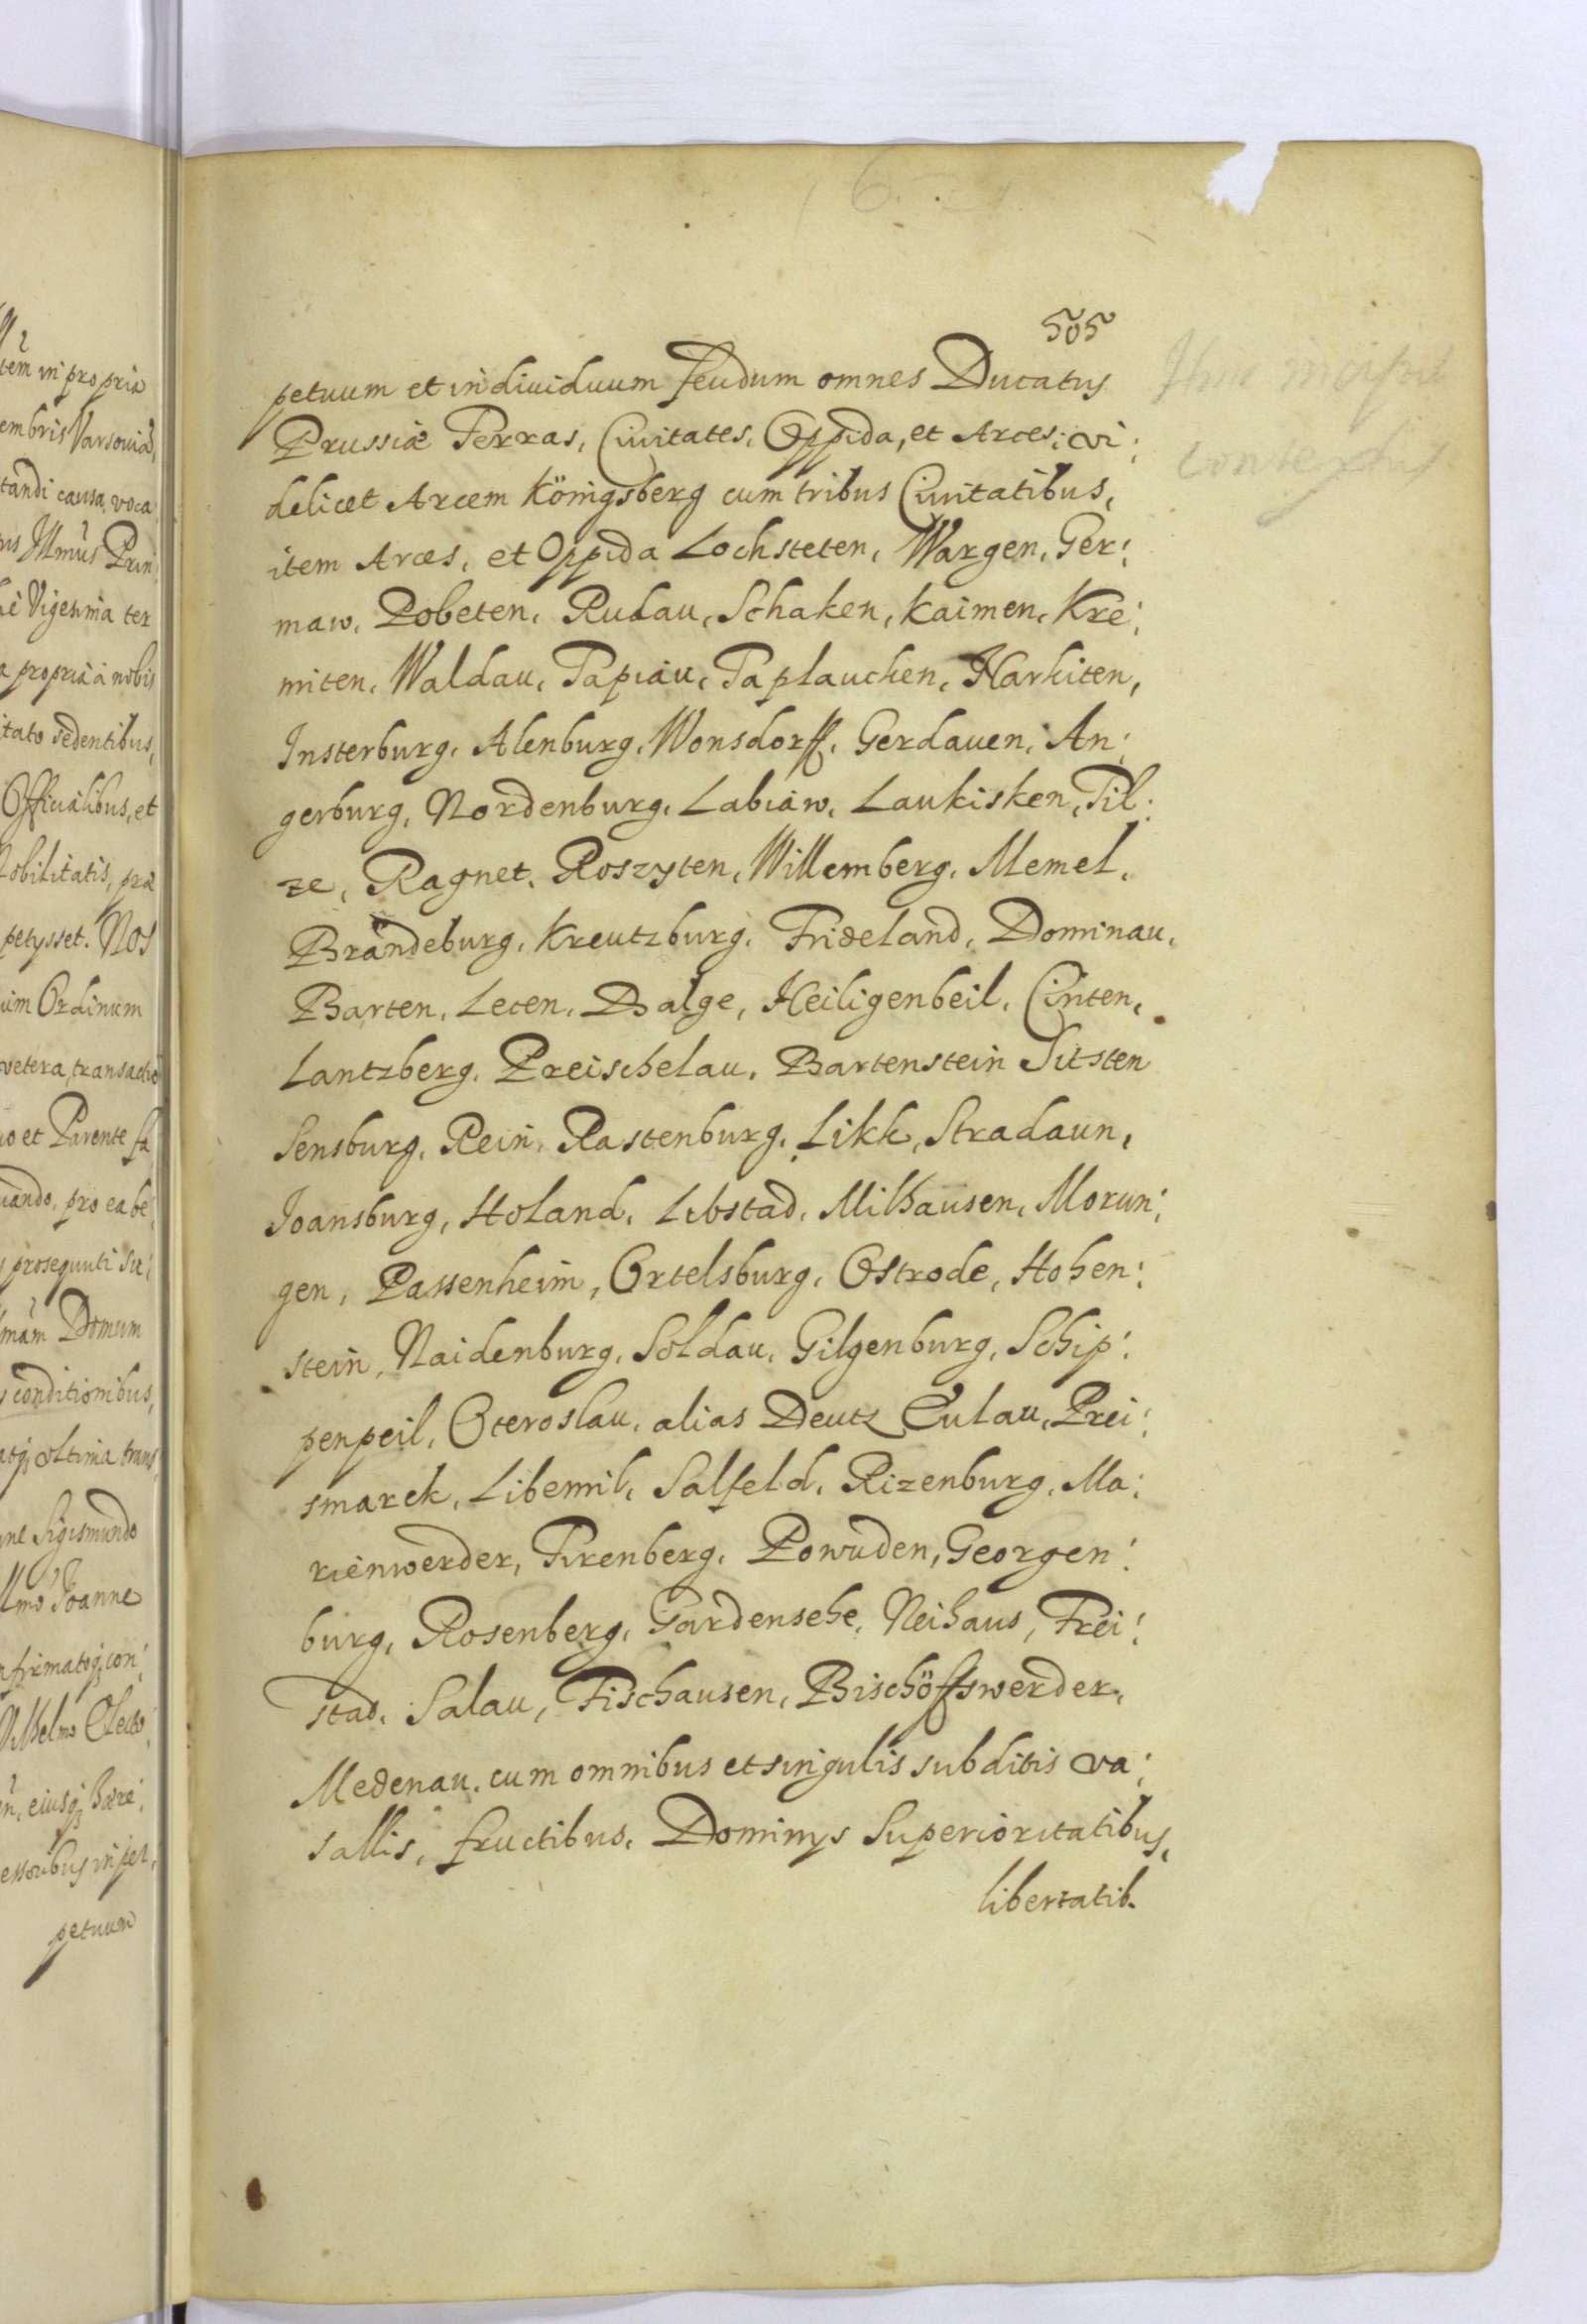 505
petuum et indiuiduum feudum omnes Ducatus
Prussiæ Terras, Ciuitates, Oppida, et Arces: vi:
delicet Arcem Königsberg cum tribus Ciuitatibus,
item Arces, et Oppida Lochsteten, Wargen, Ger:
maw, Pobeten, Rudau, Schaken, Kaimen, Kre:
miten, Waldau, Tapiau, Taplaucken, Narkiten,
Insterburg, Alenburg, Wonsdorff, Gerdauen, An:
gerburg, Nordenburg, Labiaw, Laukisken, Til:
ze, Ragnet, Roszyten, Willemberg, Memel,
Brandeburg, Kreutzburg, Frideland, Dominau,
Barten, Leten, Balge, Heiligenbeil, Cinten,
Lantzberg, Preischelau, Bartenstein Sitsten
Sensburg, Rein, Rastenburg, Likk, Stradaun,
Joansburg, Holand, Libstad, Milhausen, Morun:
gen, Passenheim, Ortelsburg, Ostrode, Hohen:
stein, Naidenburg, Soldau, Gilgenburg, Schip:
penpeil, Oteroslau, alias Deutz Eulau, Prei:
smarck, Libemil, Salfeld, Rizenburg, Ma:
rienwerder, Tirenberg, Powuden, Georgen:
burg, Rosenberg, Gardensehe, Neihaus, Frei:
stad, Salau, Fischausen, Bischöffswerder,
Medenau, cum omnibus et singulis subditis va:
sallis, fructibus, Dominys Superioritatibus,
libertatib.
incipit
contextus
tem in propria
embris Varsouiæ
tandi causa, voca
Illmus Prin:
Vigesima ter
propria à nobis
sedentibus,
Officialibus, et
Nobilitatis, præ
petysset. Nos
Ordinum
vetera, transactio
et Parente
pro ea be:
prosequuti
Domum
conditionibus,
oltima trans
Sigismundo
Joanne
con:
Electo:
eiusq; Hære:
in per,
petuum